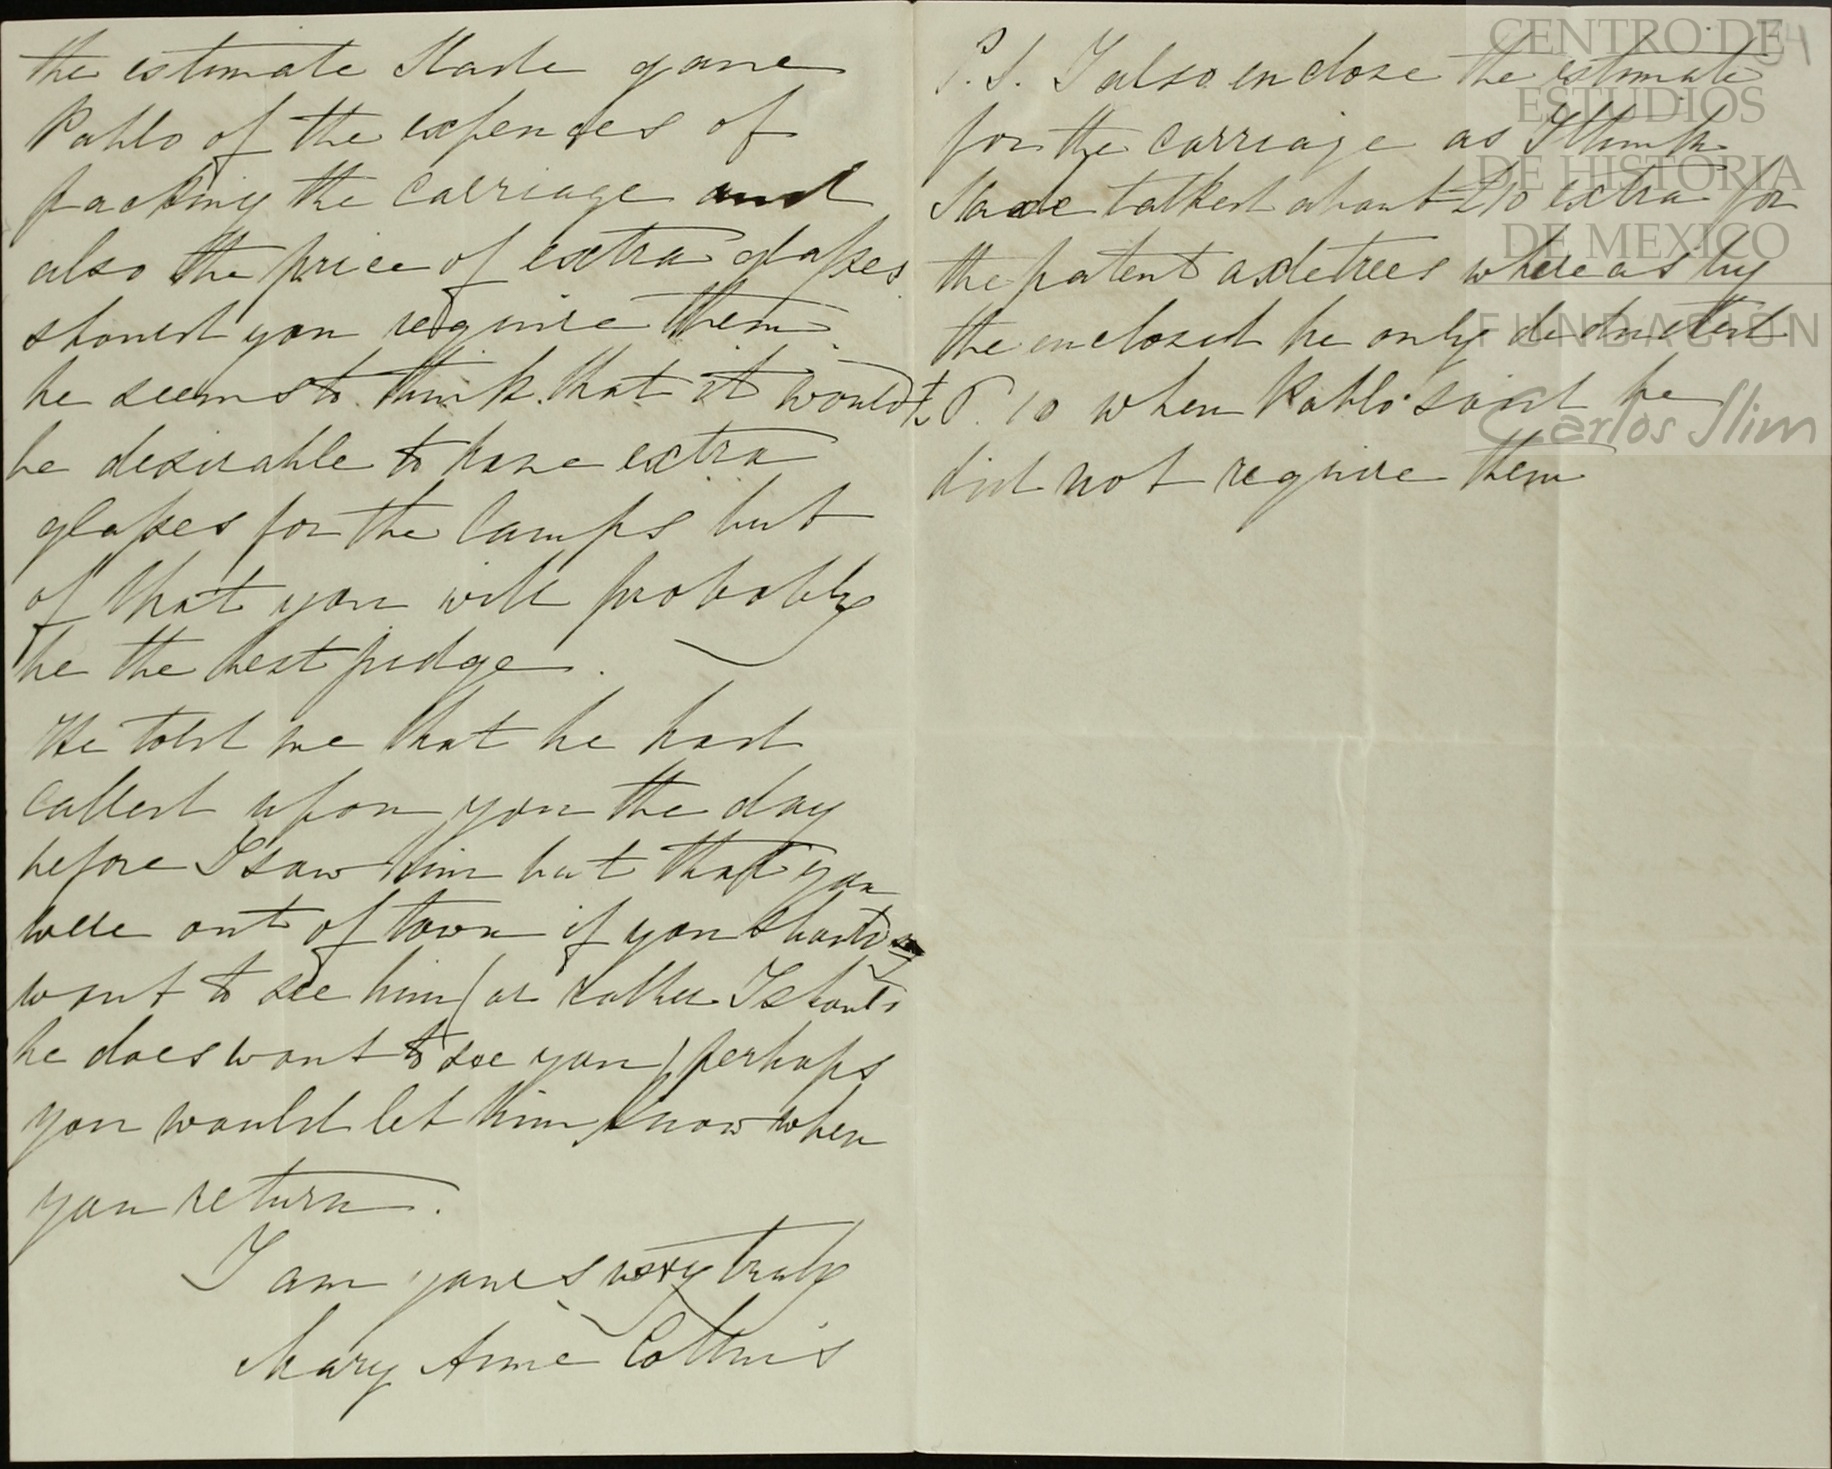 the estimate Slade gave
Pablo of the expenses of
packing the carriage and
also the price of extra glasses
should you require them.
he seems to think that it would
be desirable to have extra
glasses for the lamps but
of that you will probably
be the best judge.
He told me that he had
called upon you the day
before I saw him but that you
were out of town if you should
want to see him (or rather I should
he does want to see you) perhaps
you would let him know when
you return.
I am yours very truly
Mary Anne Collins
P.S. I also enclose the estimate
for the carriage as I think
Slade talked about £10 extra for
the patent axletrees whereas by
the enclosed he only deducted
10 when Pablo said he
did not require them
54
CENTRO DE
ESTUDIOS
DE HISTORIA
DE MEXICO
FUNDACIÓN
Carlos Slim